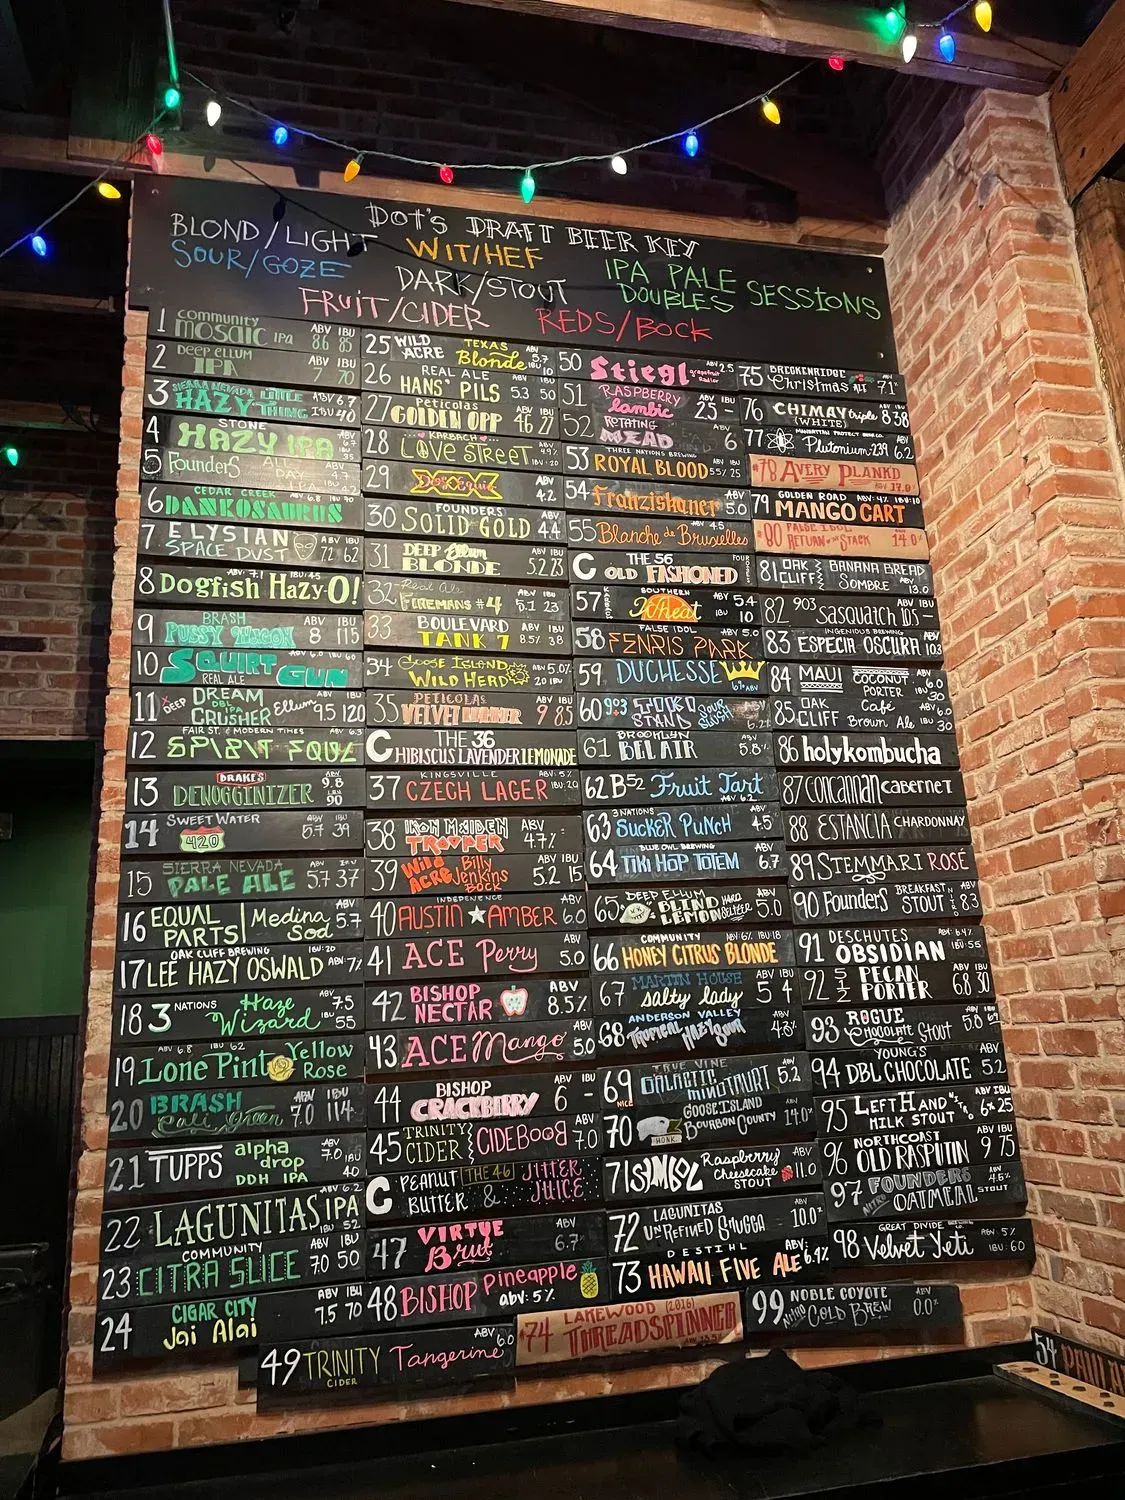 DOT'S DRAFT BEER KEY
BLOND/LIGHT WIT/HEF IPA PALE
SOUR/GOZE DARK/STOUT DOUBLES SESSIONS
FRUIT/CIDER REDS/BOCK
1 COMMUNITY MOSAIC IPA ABV 86 IBU 85
2 DEEP ELLUM IPA ABV 7 IBU 70
3 SIERRA NEVADA LITTLE HAZY THING ABV 6.7 IBU 40
4 STONE HAZY IPA
5 Founders ALL DAY IPA
6 CEDAR CREEK DANKOSAURUS ABV 6.8 IBU 70
7 ELYSIAN SPACE DUST ABV 72 IBU 62
8 Dogfish Hazy-O! ABV: 7.1 IBU: 45
9 BRASH PUSSY WAGON ABV 8 IBU 115
10 SQUIRT GUN REAL ALE ABV 6.0 IBU 60
11 DEEP Ellum DREAM CRUSHER DBL IPA ABV 9.5 IBU 120
12 FAIR ST. & MODERN TIMES ABV 6.3
13 DRAKE'S DENOGGINIZER ABV 9.8 IBU 90
14 SWEET WATER 420 ABV 5.7 IBU 39
15 SIERRA NEVADA PALE ALE ABV 5.7 IBU 37
16 EQUAL PARTS Medina Sod ABV 5.7
17 OAK CLIFF BREWING LEE HAZY OSWALD IBU: 20 ABV: 7%
18 3 NATIONS Haze Wizard ABV 7.5 IBU 55
19 Lone Pint Yellow Rose ABV 6.8 IBU 62
20 BRASH Cali Green ABV 7.0 IBU 114
21 TUPPS alpha drop DDH IPA ABV 7.0 IBU 40
22 LAGUNITAS IPA ABV 6.2 IBU 52
23 COMMUNITY CITRA SLICE ABV 7.0 IBU 50
24 CIGAR CITY Jai Alai ABV 7.5 IBU 70
25 WILD ACRE TEXAS Blonde ABV 5.7 IBU 10
26 REAL ALE HANS' PILS ABV 5.3 IBU 50
27 Peticolas GOLDEN OPP ABV 46 IBU 27
28 KARBACH LOVE STREET ABV 4.9% IBU: 20
29 Dos Equis ABV 4.2
30 FOUNDERS SOLID GOLD ABV 4.4
31 DEEP Ellum BLONDE ABV 5.2 IBU 23
32 Real Ale FIREMANS #4 ABV 5.1 IBU 23
33 BOULEVARD TANK 7 ABV 8.5% IBU 38
34 GOOSE ISLAND WILD HERD ABV 5.0% 20 IBU
35 PETICOLAS VELVET HAMMER ABV 9 IBU 85
C THE 36 HIBISCUS LAVENDER LEMONADE
37 KINGSVILLE CZECH LAGER ABV: 5% IBU: 20
38 IRON MAIDEN TROOPER ABV 4.7%
39 Wild ACRE Billy Jenkins BOCK ABV 5.2 IBU 15
40 INDEPENDENCE AUSTIN ★ AMBER ABV 6.0
41 ACE Perry ABV 5.0
42 BISHOP NECTAR ABV 8.5%
43 ACE Mango ABV 5.0
44 BISHOP CRACKBERRY ABV 6 IBU -
45 TRINITY CIDER CIDEBOOB ABV 7.0
C PEANUT BUTTER THE 46 & JITTER JUICE
47 VIRTUE Brut ABV 6.7%
48 BISHOP Pineapple abv: 5%
49 TRINITY CIDER Tangerine ABV 6.0
50 Stiegl grapefruit Radler ABV 2.5
51 RASPBERRY lambic ABV 2.5 IBU -
52 ROTATING MEAD ABV 6
53 THREE NATIONS BREWING ROYAL BLOOD ABV 5.5% IBU 25
54 Franziskaner ABV 5.0
55 Blanche de Bruxelles ABV 4.5
C THE 56 OLD FASHIONED FOUR
57 KARBACH SOUTHERN Wheat ABV 5.4 IBU 10
58 FALSE IDOL FENRIS PARK ABV 5.0
59 DUCHESSE
60 903 SOUR SLUSH 6.2%
61 BROOKLYN BEL AIR ABV 5.8%
62 B52 Fruit Tart ABV 6.2
63 3 NATIONS SUCKER PUNCH ABV 4.5
64 BLUE OWL BREWING TIKI HOP TOTEM ABV 6.7
65 DEEP ELLUM BLIND LEMON HARD SELTZER ABV 5.0
66 COMMUNITY HONEY CITRUS BLONDE ABV: 6% IBU: 18
67 MARTIN HOUSE salty lady ABV 5 IBU 4
68 ANDERSON VALLEY TROPICAL HAZY SOUR ABV 4.8%
69 NICE TRUE VINE GALACTIC ABV 5.2
70 HONK. GOOSE ISLAND BOURBON COUNTY ABV 14.0%
71 SYMBOL Raspberry Cheesecake STOUT ABV 11.0
72 LAGUNITAS UnREFINED SHUGGA ABV 10.0%
73 DESTIHL HAWAII FIVE ALE ABV: 6.4%
74 LAKEWOOD (2016) THREADSPINNER
75 BRECKENRIDGE Christmas ALE ABV 7.1%
76 CHIMAY triple (WHITE) ABV 8 IBU 38
77 MANHATTAN PROJECT BEER CO. Plutonium-239 ABV 6.2
#78 AVERY PLANKD ABV 17.0%
79 GOLDEN ROAD MANGO CART ABV: 4% IBU: 10
#80 FALSE IDOL RETURN OF THE STACK ABV 14.0%
81 OAK CLIFF BANANA BREAD SOMBRE ABV 13.0
82 903 Sasquatch ABV 10.5 IBU -
83 INGENIOUS BREWING ESPECIA OSCURA ABV 10.3
84 MAUI COCONUT PORTER ABV 6.0 IBU 30
85 OAK CLIFF Café Brown Ale ABV 6.0 IBU 30
86 holykombucha
87 CONCANNON CABERNET
88 ESTANCIA CHARDONNAY
89 STEMMARI ROSÉ
90 Founders BREAKFAST STOUT NITRO ABV 8.3
91 DESCHUTES OBSIDIAN ABV: 6.4% IBU: 55
92 512 PECAN PORTER ABV 6.8 IBU 30
93 ROGUE Chocolate Stout ABV 5.8 IBU 69
94 YOUNG'S DBL CHOCOLATE ABV 5.2
95 LEFT HAND NITRO MILK STOUT ABV 6% IBU 25
96 NORTHCOAST OLD RASPUTIN ABV 9 IBU 75
97 NITRO FOUNDERS OATMEAL STOUT ABV 4.5%
98 GREAT DIVIDE Velvet Yeti ABV: 5% IBU: 60
99 NITRO NOBLE COYOTE COLD BREW ABV 0.0%
54